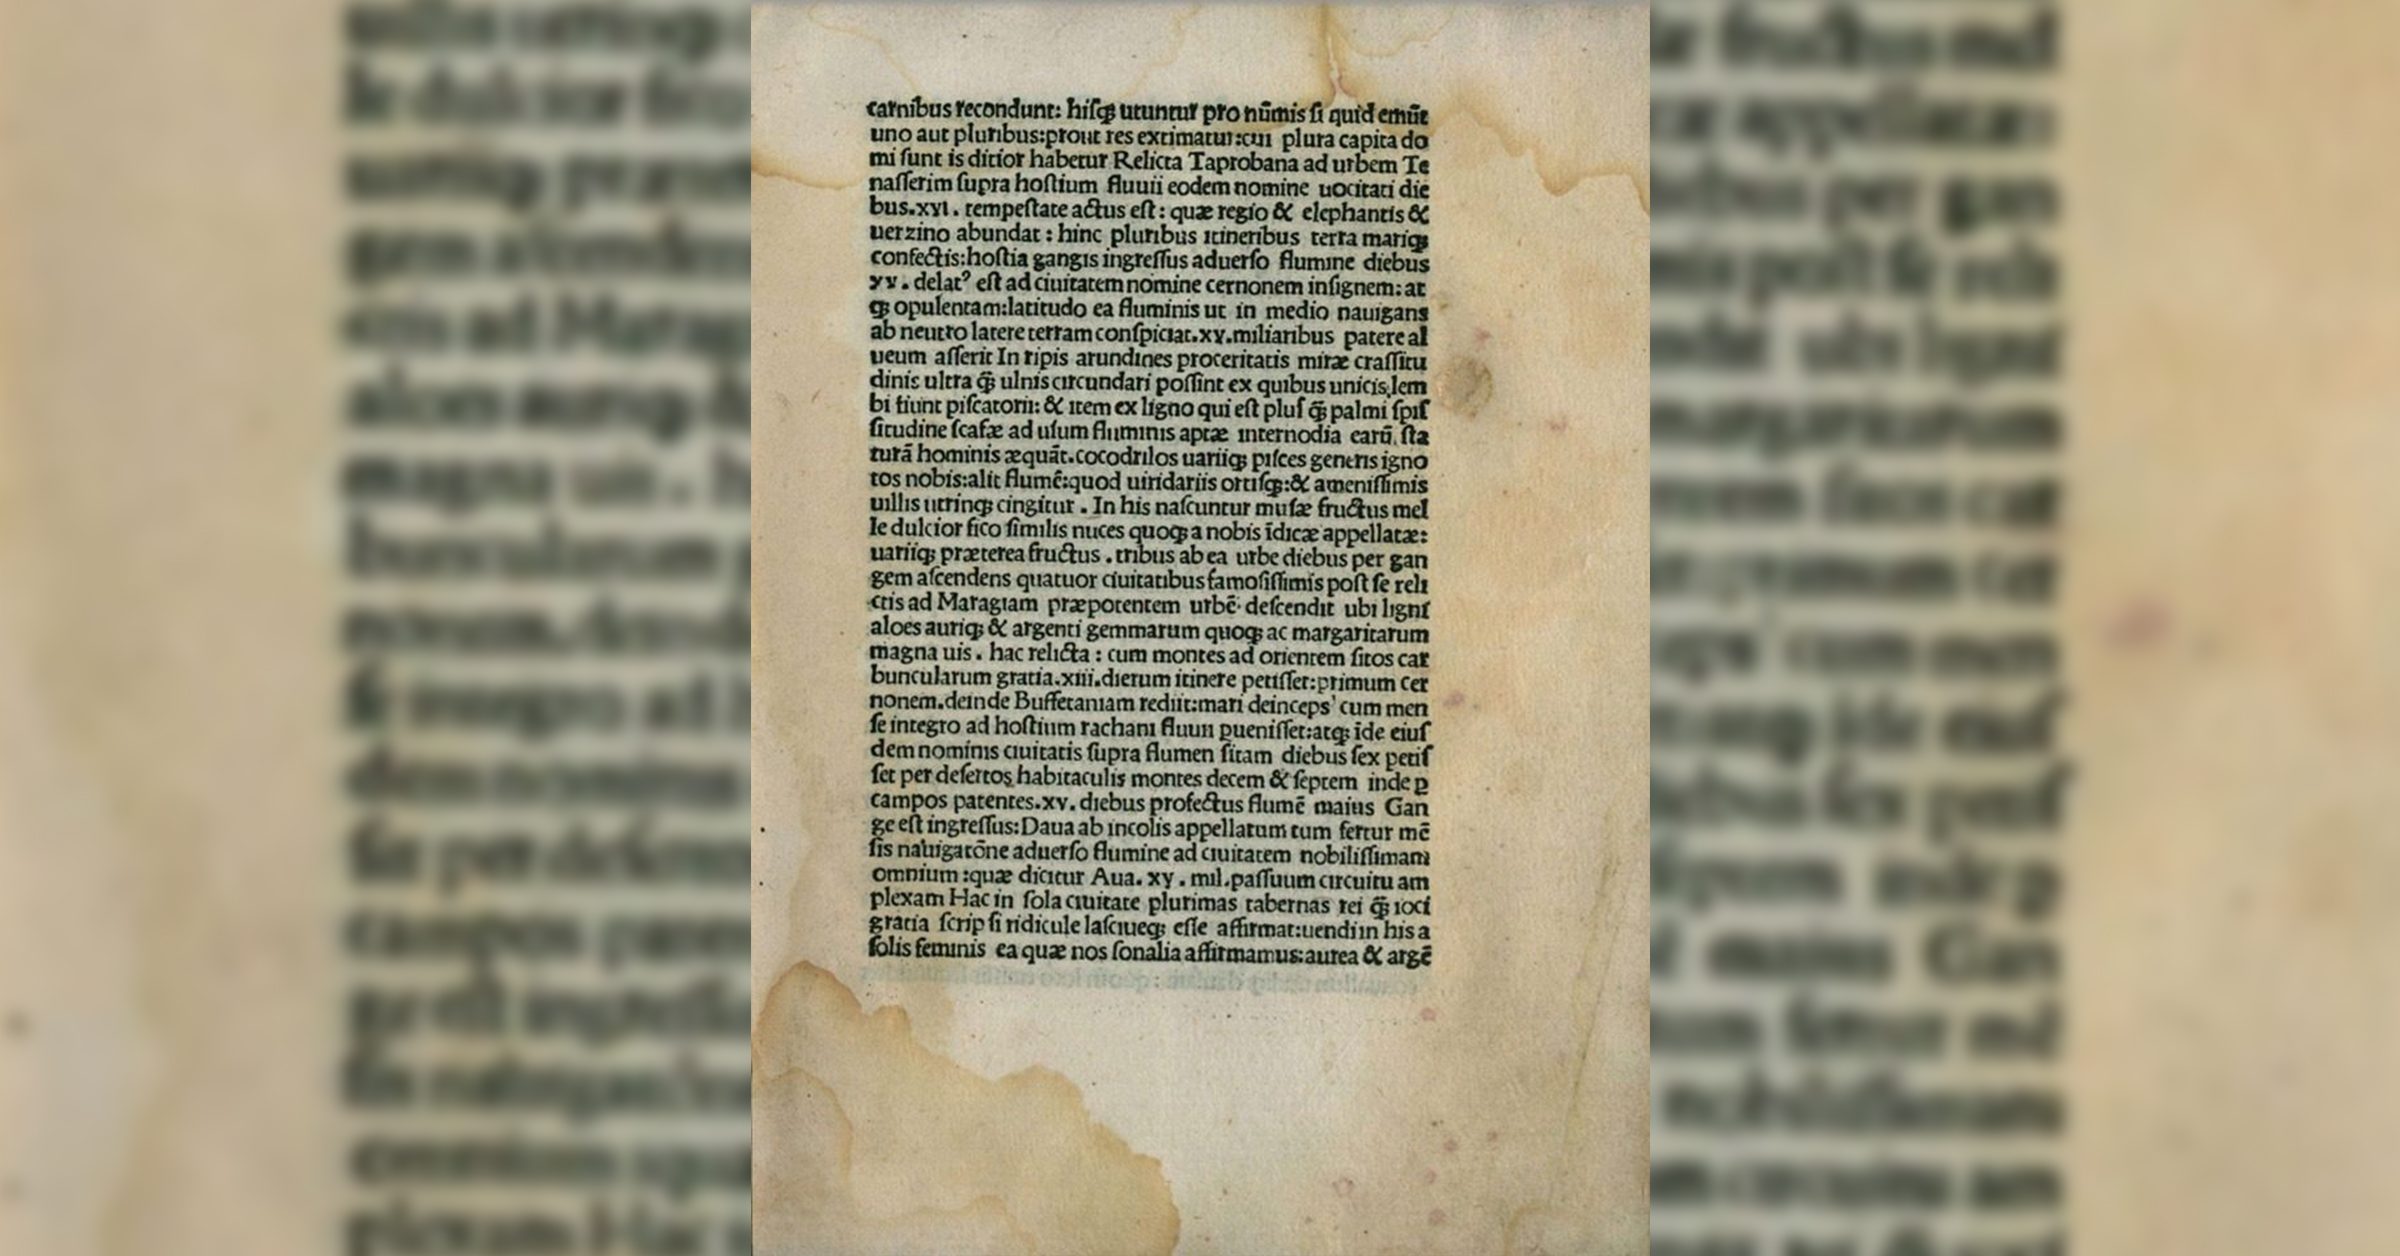 carnibus recondunt: hiſqꝫ utuntur pro nūmis ſi quid emūt
uno aut pluribus:prout res extimatur:cui plura capita do
mi ſunt is ditior habetur Relicta Taprobana ad urbem Te
naſſerim ſupra hoſtium fluuii eodem nomine uocitati die
bus.xvi. tempeſtate actus eſt: quæ regio & elephantis &
uerzino abundat: hinc pluribus itineribus terra mariqꝫ
confectis:hoſtia gangis ingreſſus aduerſo flumine diebus
xv. delatꝰ eſt ad ciuitatem nomine cernonem inſignem: at
qꝫ opulentam:latitudo ea fluminis ut in medio nauigans
ab neutro latere terram conſpiciat.xv.miliaribus patere al
ueum aſſerit In ripis arundines proceritatis miræ craſſitu
dinis ultra qꝫ̄ ulnis circundari poſſint ex quibus unicis lem
bi fiunt piſcatorii: & item ex ligno qui eſt pluſ qꝫ̄ palmi ſpiſ
ſitudine ſcafæ ad uſum fluminis aptæ internodia earū ſta
turā hominis æquāt.cocodrilos uariiqꝫ piſces generis igno
tos nobis:alit flumē:quod uiridariis ortiſqꝫ:& ameniſſimis
uillis utrinqꝫ cingitur. In his naſcuntur muſæ fructus mel
le dulcior fico ſimilis nuces quoqꝫ a nobis īdicæ appellatæ:
uariiqꝫ præterea fructus. tribus ab ea urbe diebus per gan
gem aſcendens quatuor ciuitatibus famoſiſſimis poſt ſe reli
ctis ad Maragiam præpotentem urbē deſcendit ubi ligni
aloes auriqꝫ & argenti gemmarum quoqꝫ ac margaritarum
magna uis. hac relicta: cum montes ad orientem ſitos car
buncularum gratia.xiii.dierum itinere petiſſet:primum cer
nonem.deinde Buffetaniam rediit:mari deinceps cum men
ſe integro ad hoſtium rachani fluuii ꝑueniſſet:atqꝫ īde eiuſ
dem nominis ciuitatis ſupra flumen ſitam diebus ſex petiſ
ſet per deſertos habitaculis montes decem & ſeptem inde ꝑ
campos patentes.xv. diebus profectus flumē maius Gan
ge eſt ingreſſus:Daua ab incolis appellatum tum fertur mē
ſis nauigatōne aduerſo flumine ad ciuitatem nobiliſſimam
omnium:quæ dicitur Aua. xv. mil.paſſuum circuitu am
plexam Hac in ſola ciuitate plurimas tabernas rei qꝫ̄ ioci
gratia ſcripſi ridicule laſciueqꝫ eſſe affirmat:uendi in his a
ſolis feminis ea quæ nos ſonalia affirmamus:aurea & argē